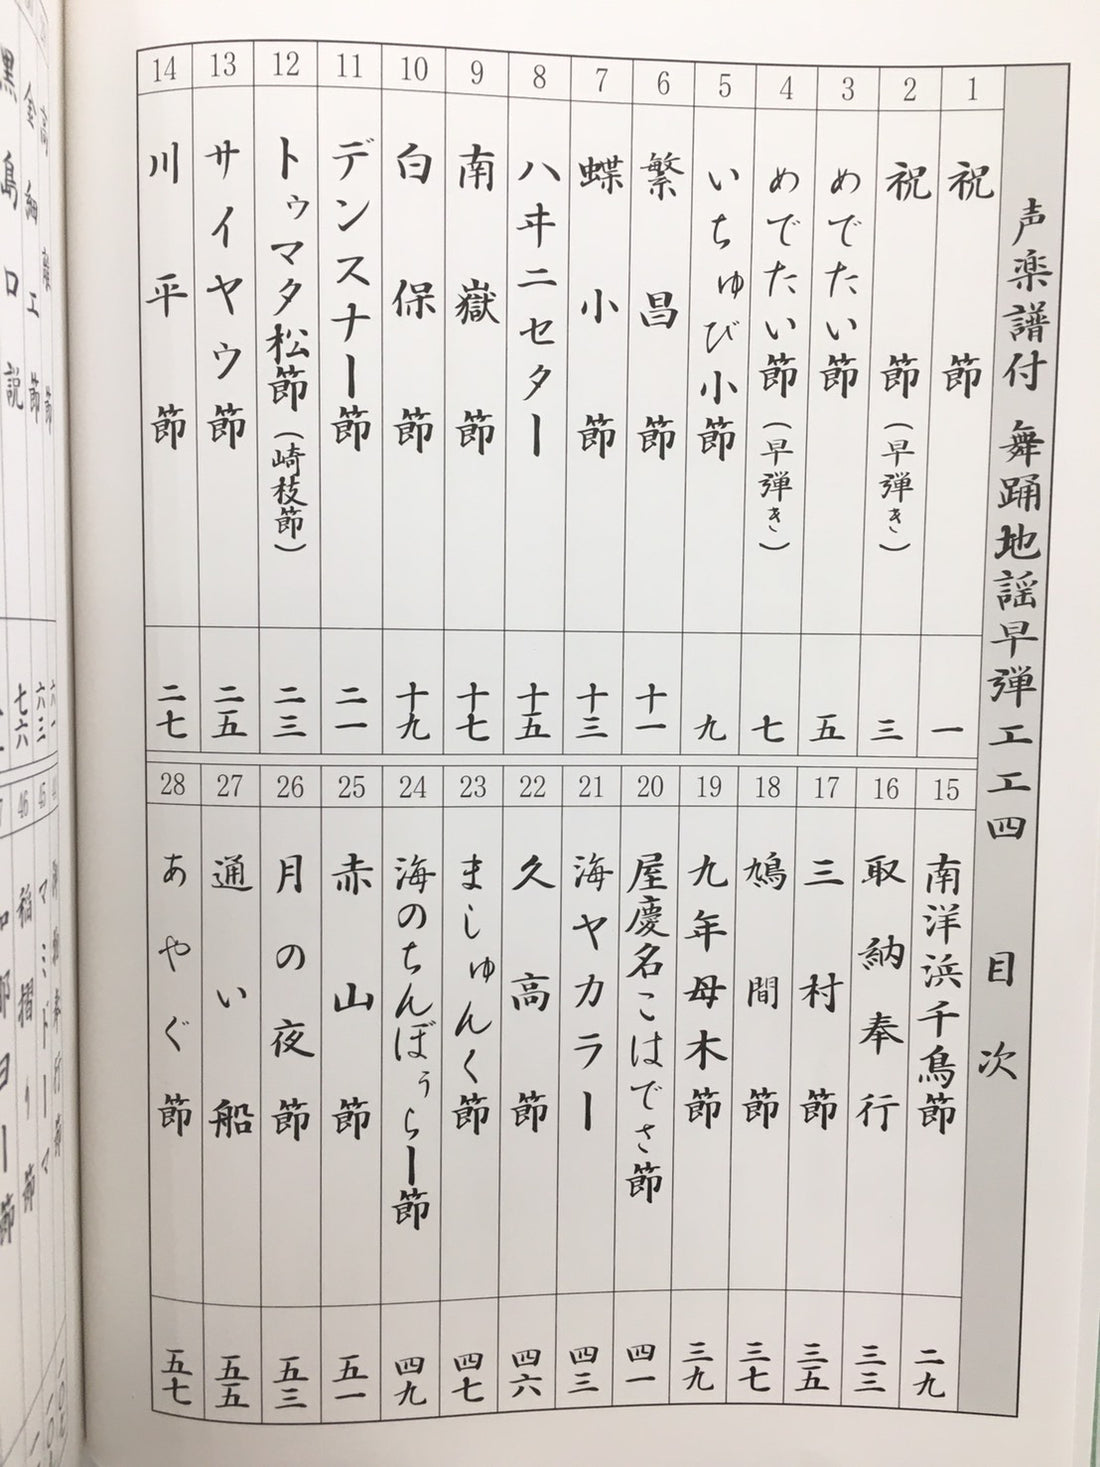 声楽譜付 舞踊地謡早弾工工四 目次
1 祝節 一
2 祝節(早弾き) 三
3 めでたい節 五
4 めでたい節(早弾き) 七
5 いちゅび小節 九
6 繁昌節 十一
7 蝶小節 十三
8 ハヰニセター 十五
9 南嶽節 十七
10 白保節 十九
11 デンスナー節 二一
12 トゥマタ松節(崎枝節) 二三
13 サイヤウ節 二五
14 川平節 二七
15 南洋浜千鳥節 二九
16 取納奉行 三三
17 三村節 三五
18 鳩間節 三七
19 九年母木節 三九
20 屋慶名こはでさ節 四一
21 海ヤカラー 四三
22 久高節 四六
23 ましゅんく節 四七
24 海のちんぼぅらー節 四九
25 赤山節 五一
26 月の夜節 五三
27 通い船 五五
28 あやぐ節 五七
黒島口説
七六
六三
46
45